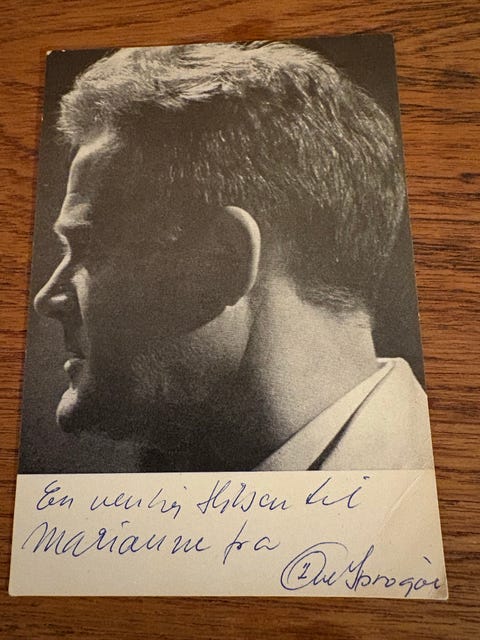 En venlig Hilsen til
Marianne fra
Ove Sprogøe